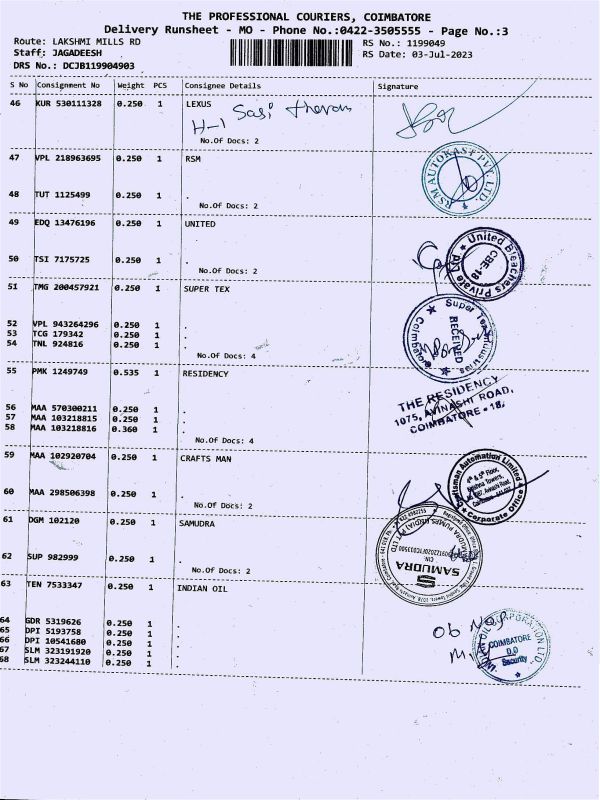 THE PROFESSIONAL COURIERS, COIMBATORE
Delivery Runsheet - MO - Phone No.:0422-3505555 - Page No.:3
Route: LAKSHMI MILLS RD RS No.: 1199049
Staff: JAGADEESH RS Date: 03-Jul-2023
DRS No.: DCJB119904903
S No Consignment No Weight PCS Consignee Details Signature
46 KUR 530111328 0.250 1 LEXUS
H-1 Sasi
No.Of Docs: 2
47 VPL 218963695 0.250 1 RSM
RSM AUTOKAST PVT. LTD.
48 TUT 1125499 0.250 1 .
No.Of Docs: 2
49 EDQ 13476196 0.250 1 UNITED
United Bleachers Private Ltd
CBE-18
50 TSI 7175725 0.250 1 .
No.Of Docs: 2
51 TMG 200457921 0.250 1 SUPER TEX
Super Tex Industries
RECEIVED
Coimbatore
52 VPL 943264296 0.250 1 .
53 TCG 179342 0.250 1 .
54 TNL 924816 0.250 1 .
No.Of Docs: 4
55 PMK 1249749 0.535 1 RESIDENCY
THE RESIDENCY
1075, AVINASHI ROAD,
COIMBATORE - 18.
56 MAA 570300211 0.250 1 .
57 MAA 103218815 0.250 1 .
58 MAA 103218816 0.360 1 .
No.Of Docs: 4
59 MAA 102920704 0.250 1 CRAFTS MAN
Craftsman Automation Limited
4th & 5th Floor,
Towers,
Corporate Office
60 MAA 298506398 0.250 1 .
No.Of Docs: 2
61 DGM 102120 0.250 1 SAMUDRA
SAMUDRA
62 SUP 982999 0.250 1 .
No.Of Docs: 2
63 TEN 7533347 0.250 1 INDIAN OIL
64 GDR 5319626 0.250 1 .
65 DPI 5193758 0.250 1 .
66 DPI 10541680 0.250 1 .
67 SLM 323191920 0.250 1 .
68 SLM 323244110 0.250 1 .
INDIAN OIL CORPORATION LTD.
COIMBATORE
D.O
Security